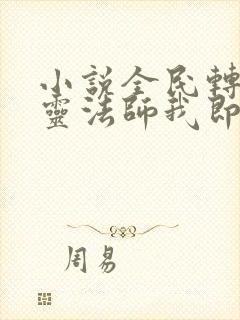 小説全民轉
靈法師我即
周易